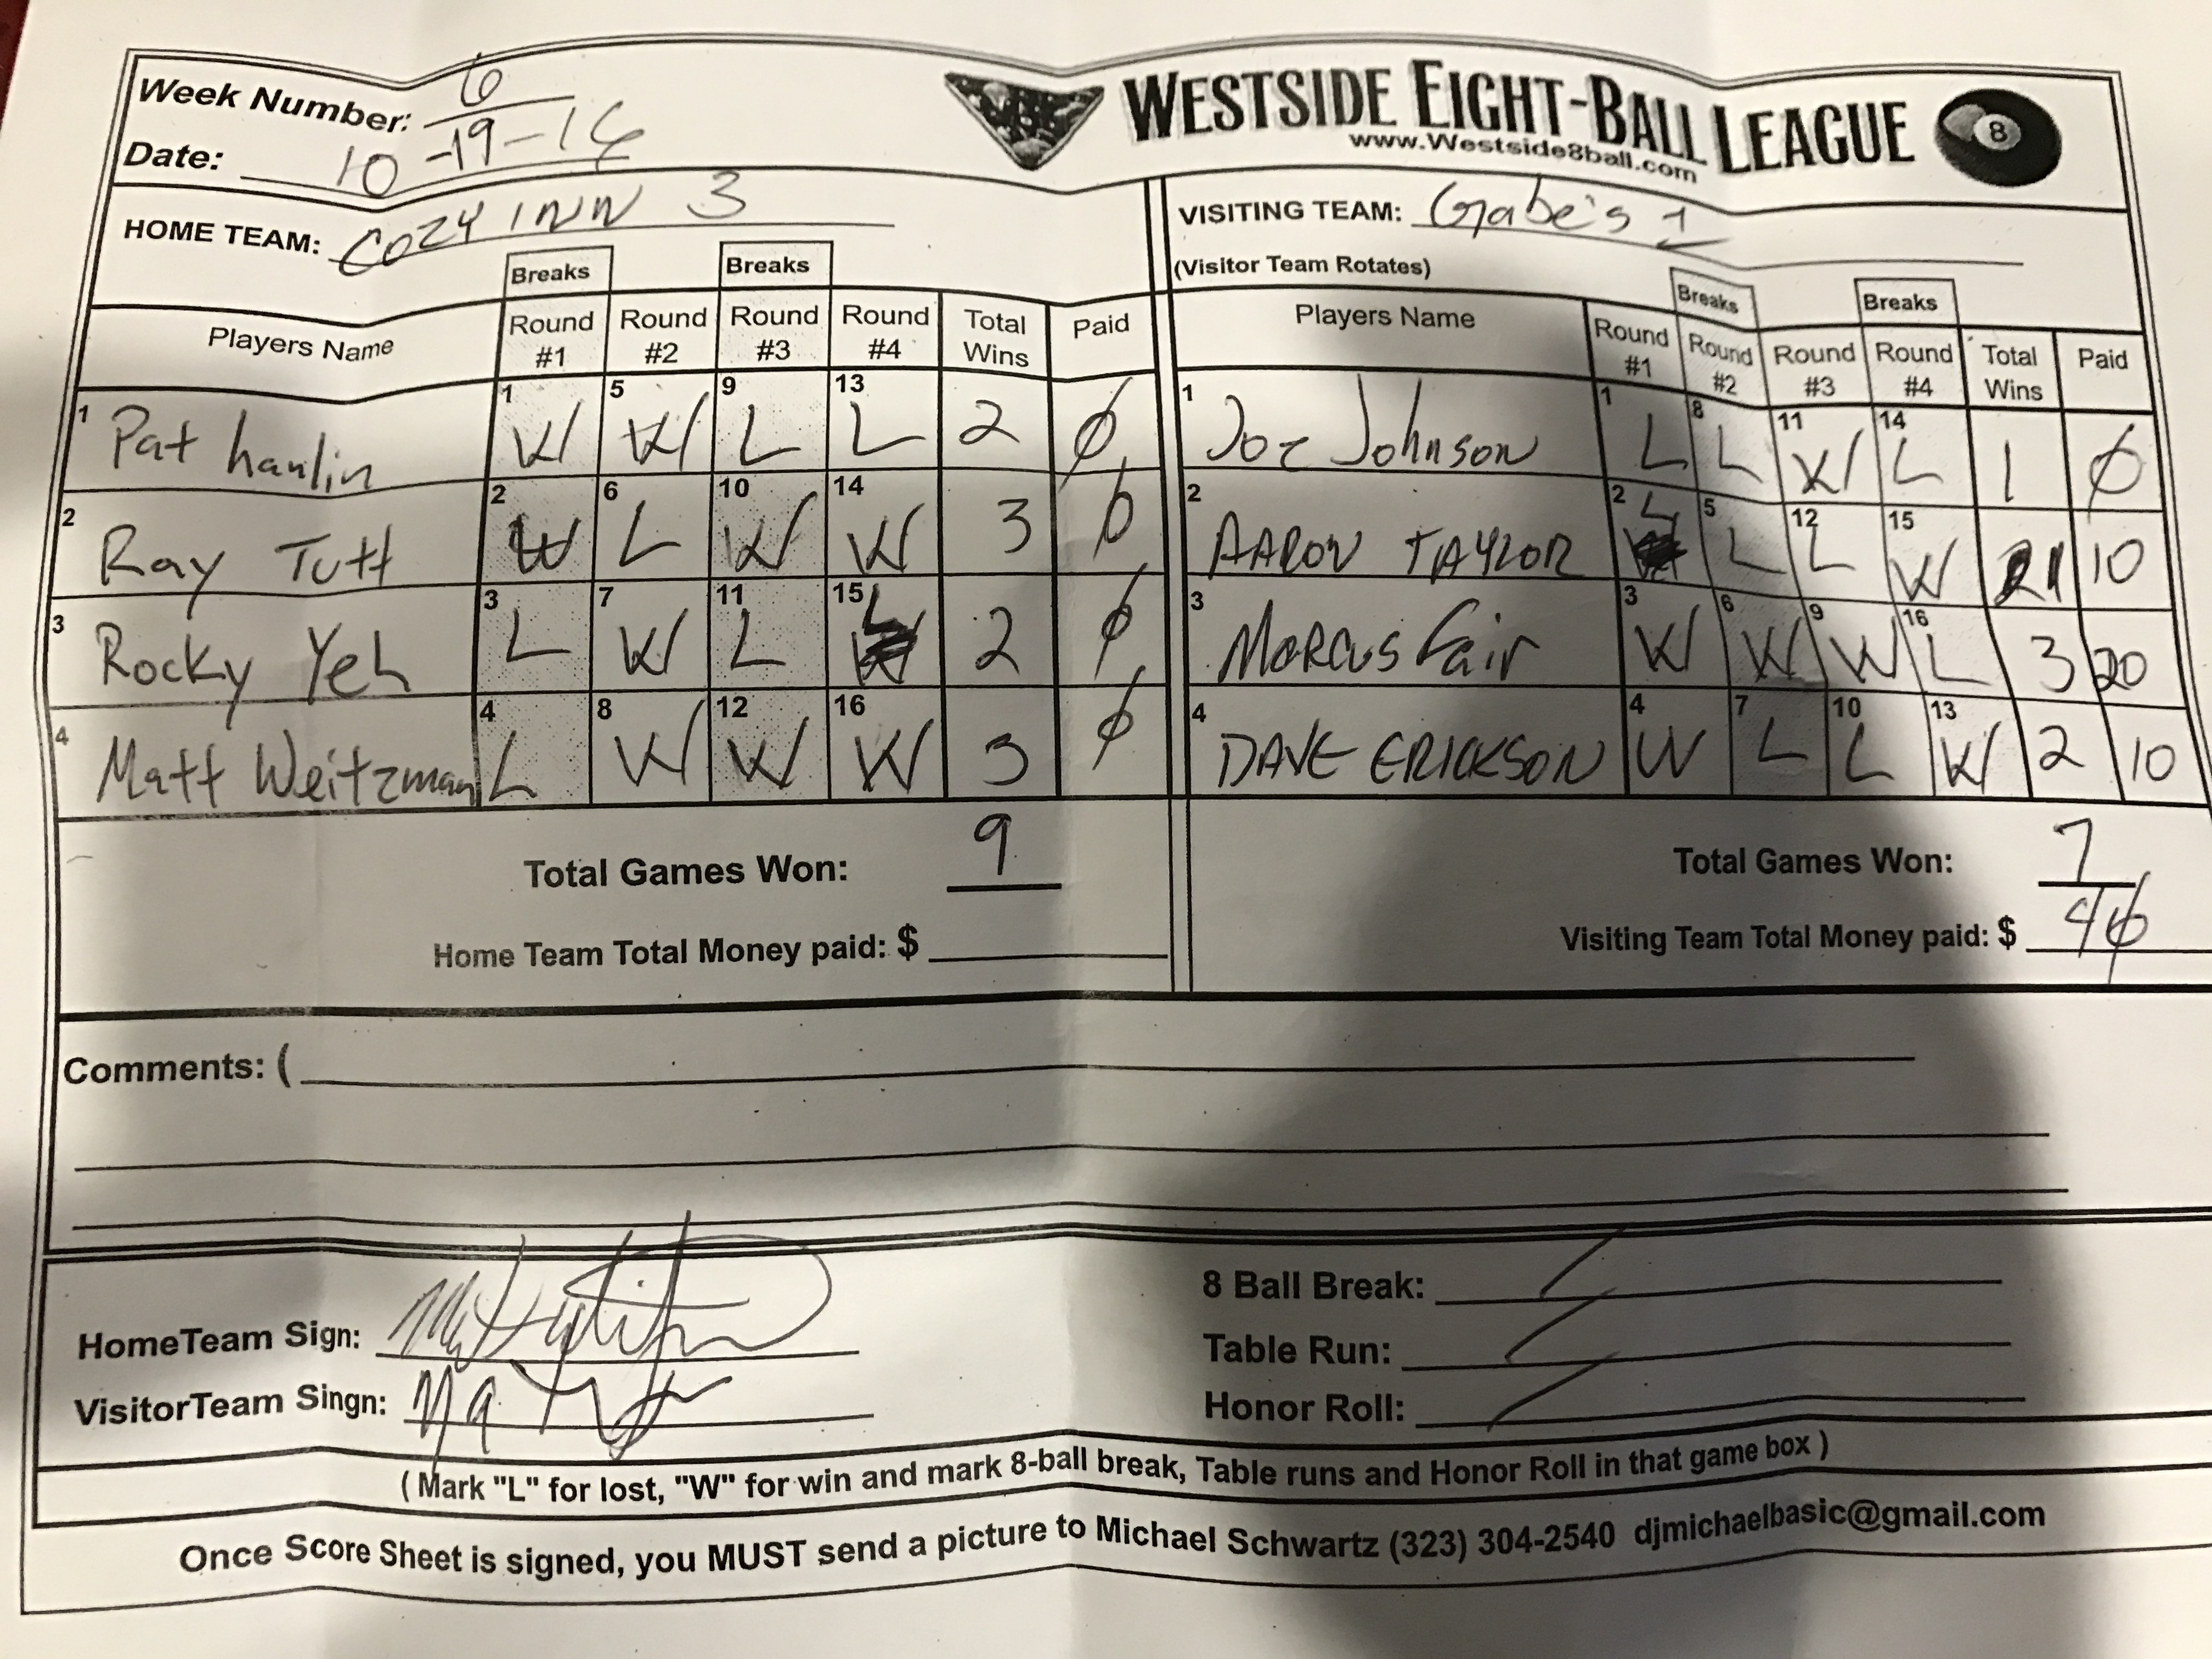 Week Number: 6
Date: 10-19-16
WESTSIDE EIGHT-BALL LEAGUE
8
www.Westside8ball.com
HOME TEAM: COZY INN 3
VISITING TEAM: Gabe's 1
(Visitor Team Rotates)
Breaks Breaks
Players Name Round #1 Round #2 Round #3 Round #4 Total Wins Paid
1 Pat hanlin 1 W 5 W 9 L 13 L 2 0
2 Ray Tutt 2 W 6 L 10 W 14 W 3 0
3 Rocky Yeh 3 L 7 W 11 L 15 L 2 0
4 Matt Weitzman 4 L 8 W 12 W 16 W 3 0
Total Games Won: 9
Home Team Total Money paid: $
Breaks Breaks
Players Name Round #1 Round #2 Round #3 Round #4 Total Wins Paid
1 Joe Johnson 1 L 8 L 11 W 14 L 1 0
2 AARON TAYLOR 2 L 5 L 12 L 15 W 1 10
3 Marcus Fair 3 W 6 W 9 W 16 L 3 20
4 DAVE ERICKSON 4 W 7 L 10 L 13 W 2 10
Total Games Won: 7
Visiting Team Total Money paid: $ 40
Comments: (
HomeTeam Sign:
VisitorTeam Singn:
8 Ball Break:
Table Run:
Honor Roll:
( Mark "L" for lost, "W" for win and mark 8-ball break, Table runs and Honor Roll in that game box )
Once Score Sheet is signed, you MUST send a picture to Michael Schwartz (323) 304-2540 djmichaelbasic@gmail.com